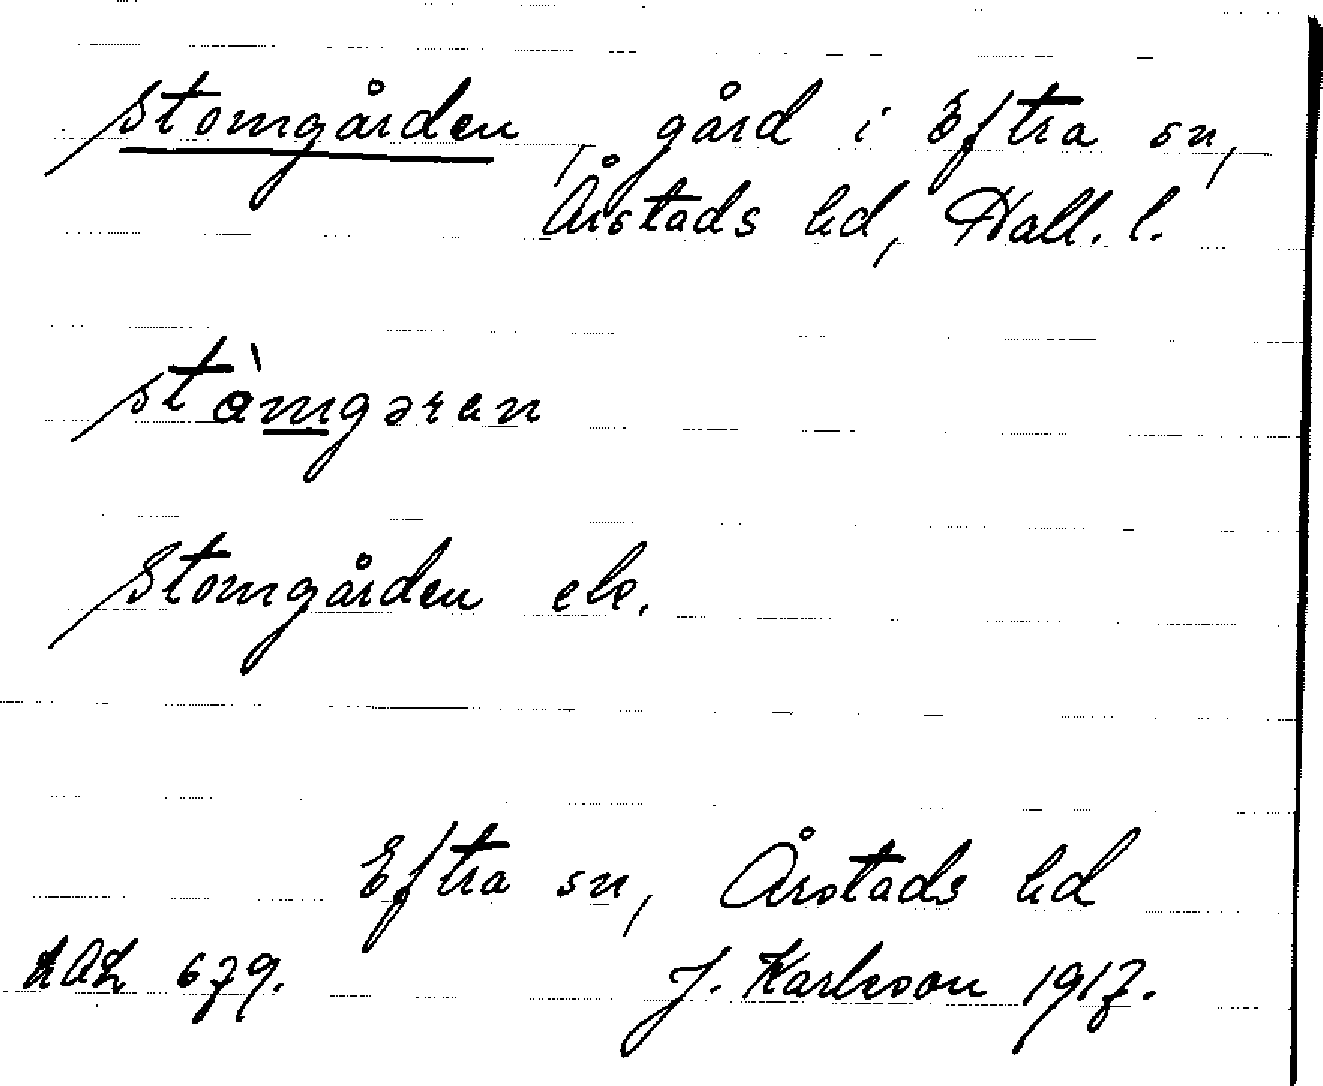 Stomgården, gård i Eftra sn,
Årstads hd, Hall. l.
stòmgəren
Stomgården ek.
Eftra sn, Årstads hd
LAL 679. J. Karlsson 1917.